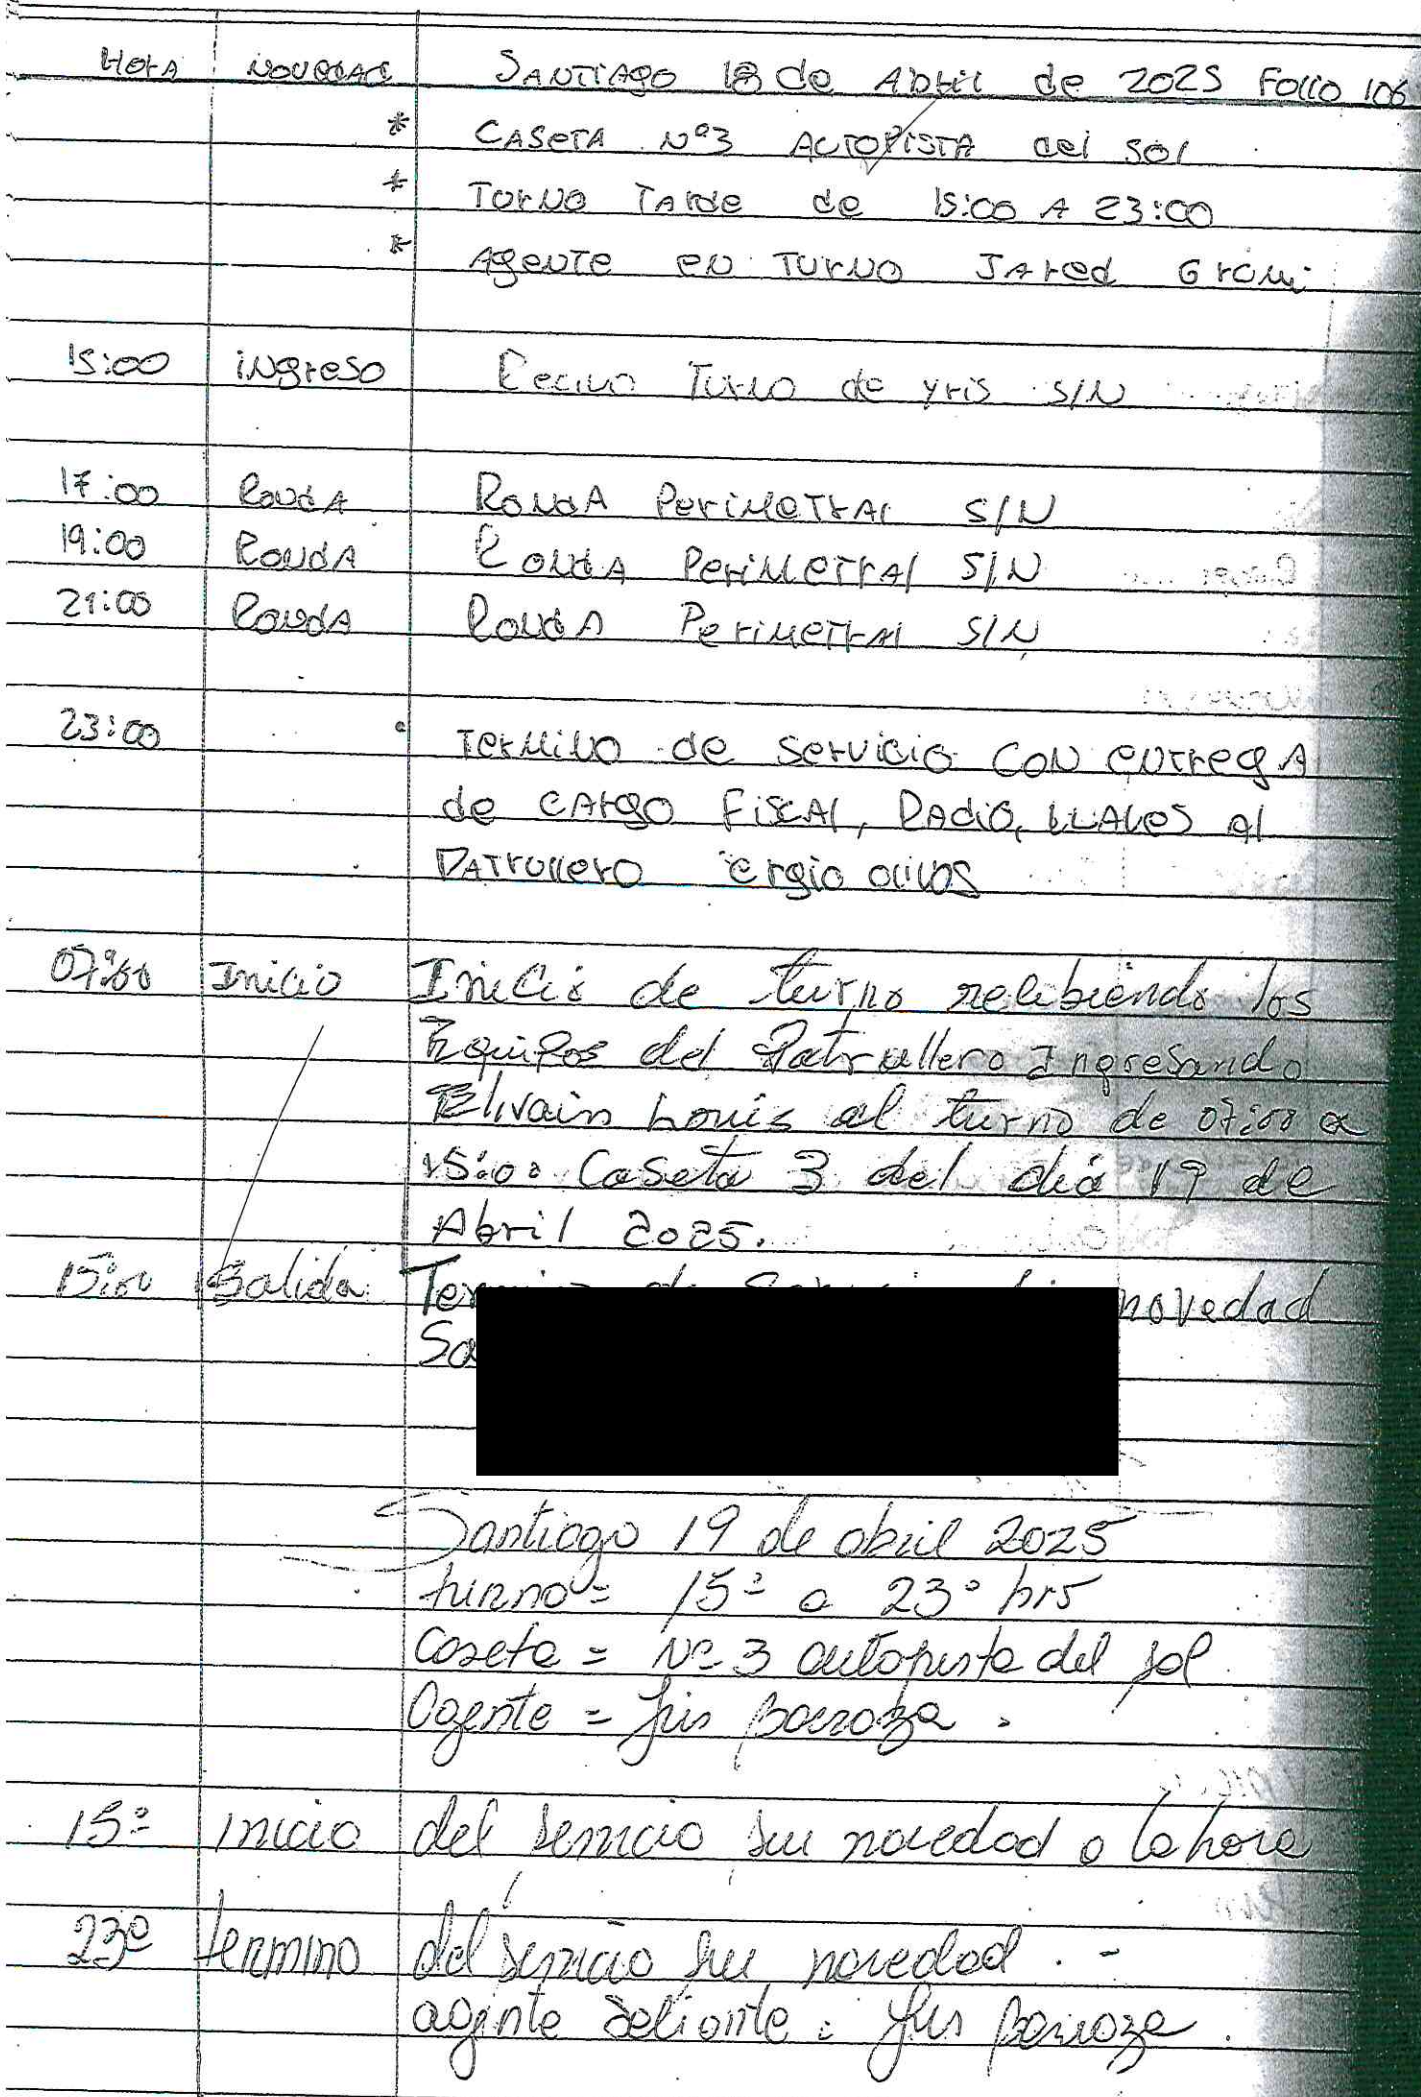 HORA NOVEDAD SANTIAGO 18 de Abril de 2025 Folio 106
* CASETA Nº3 AUTOPISTA del SOL
* TURNO TARDE de 15:00 A 23:00
* AGENTE EN TURNO JARED
15:00 INGRESO Recivo Turno de Yris S/N
17:00 RONDA RONDA PERIMETRAL S/N
19:00 RONDA RONDA PERIMETRAL S/N
21:00 RONDA RONDA PERIMETRAL S/N
23:00 TERMINO de servicio CON ENTREGA
de CARGO FISCAL, RADIO, LLAVES Al
PATRULLERO ergio olivos
07:00 Inicio Inicio de turno recibiendo los
Equipos del Patrullero Ingresando
Elivain Louis al turno de 07:00 a
15:00 Caseta 3 del dia 19 de
Abril 2025.
15:00 Salida Ter novedad
Sa
Santiago 19 de abril 2025
turno = 15º a 23º hrs
Caseta = Nº 3 autopista del sol
Agente = Barroza .
15º inicio del servicio sin novedad a la hora
23º termino del servicio sin novedad . -
agente saliente : Barroza .